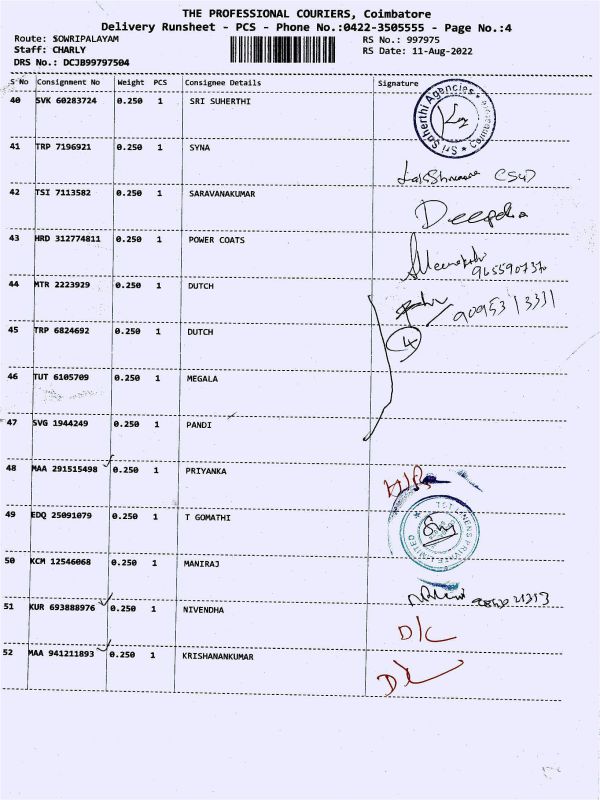 THE PROFESSIONAL COURIERS, Coimbatore
Delivery Runsheet - PCS - Phone No.:0422-3505555 - Page No.:4
Route: SOWRIPALAYAM RS No.: 997975
Staff: CHARLY RS Date: 11-Aug-2022
DRS No.: DCJB99797504
S No Consignment No Weight PCS Consignee Details Signature
40 SVK 60283724 0.250 1 SRI SUHERTHI
Sri Saherthi Agencies
41 TRP 7196921 0.250 1 SYNA
42 TSI 7113582 0.250 1 SARAVANAKUMAR
Deepika
43 HRD 312774811 0.250 1 POWER COATS
44 MTR 2223929 0.250 1 DUTCH
90953 13331
45 TRP 6824692 0.250 1 DUTCH
4
46 TUT 6105709 0.250 1 MEGALA
47 SVG 1944249 0.250 1 PANDI
48 MAA 291515498 0.250 1 PRIYANKA
49 EDQ 25091079 0.250 1 T GOMATHI
LINENS PRIVATE LIMITED
50 KCM 12546068 0.250 1 MANIRAJ
51 KUR 693888976 0.250 1 NIVENDHA D/C
52 MAA 941211893 0.250 1 KRISHANANKUMAR